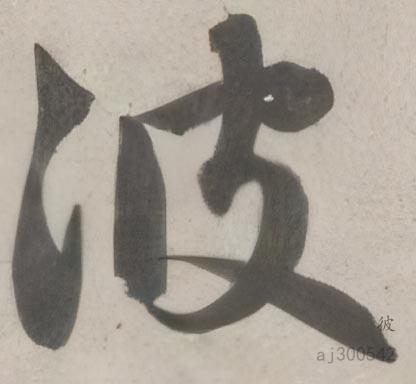 波
彼
aj300542